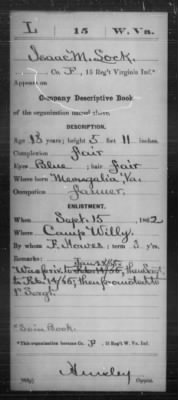 L 15 W. Va.
Isaac M. Lock.
Co. F, 15 Reg't Virginia Inf.*
Appears on
Company Descriptive Book
of the organization named above.
DESCRIPTION.
Age 18 years; height 5 feet 11 inches.
Complexion Fair
Eyes Blue; hair Fair
Where born Monogalia Va.
Occupation Farmer.
ENLISTMENT.
When Sept. 15, 1862
Where Camp Willy.
By whom F. ; term 3 y'rs.
Remarks:
Was priv. to then
to Feb. 14/65; then promoted to
1st Sergt.
*So in Book.
*This organization became Co. F 15 Reg't W. Va. Inf.
Copyist.